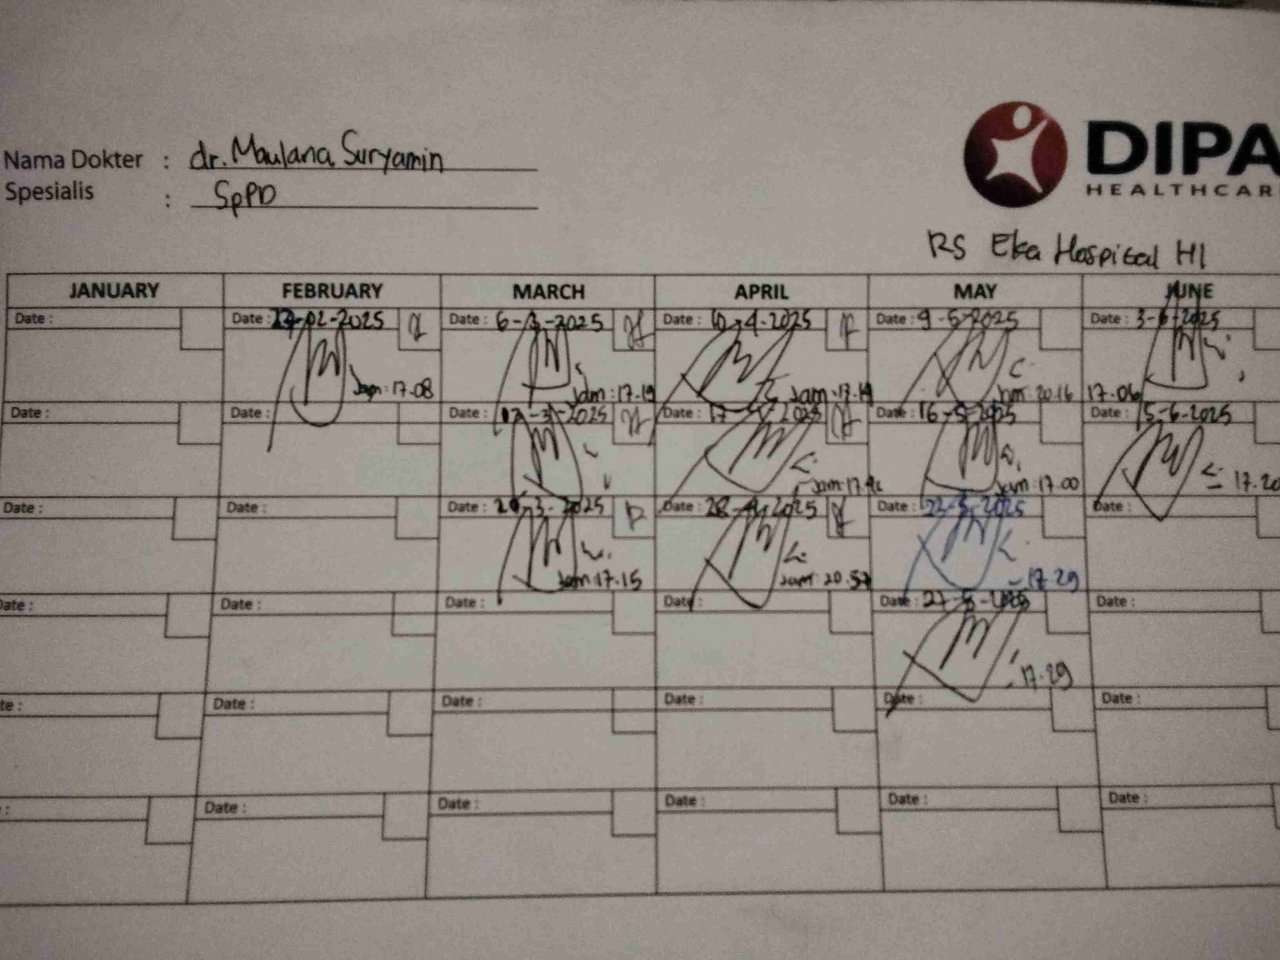 Nama Dokter : dr. Maulana Suryamin
Spesialis : SpPD
DIPA
HEALTHCAR
RS Eka Hospital HI
JANUARY FEBRUARY MARCH APRIL MAY JUNE
Date : Date : -02-2025 Date : 6-3-2025 Date : 10-4-2025 Date : 9-5-2025 Date : 3-6-2025
Jam: 17.08 Jam: 17.19 Jam: 17.19 Jam: 20.16 17.06
Date : Date : -3-2025 Date : 17 2025 Date : 16-5-2025 Date : 15-6-2025
Jam: 17.00 17.20
Date : Date : Date : -3-2025 Date : 28-4-2025 Date : 22-5-2025 Date :
Jam: 17.15 Jam: 20.57 17.29
Date : Date : Date : Date : Date : 27-5-2025 Date :
17.29
te : Date : Date : Date : Date : Date :
: Date : Date : Date : Date : Date :